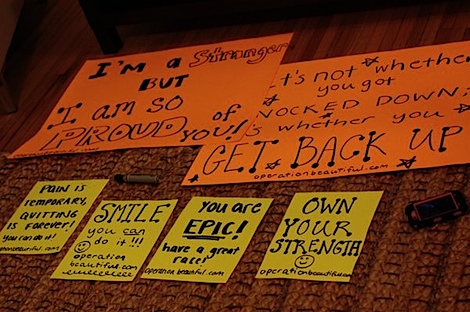 I'm a Stranger
BUT
I AM SO
PROUD of
YOU!
t's not whether
you got
NOCKED DOWN;
s whether you
GET BACK UP
operationbeautiful.com
PAIN is
TEMPORARY,
QUITTING
is FOREVER!
you can do it!
SMILE
you can
do it!!!
operation
beautiful.com
You are
EPIC!
have a great
race!
operation beautiful.com
OWN
YOUR
STRENGTH
operationbeautiful.com